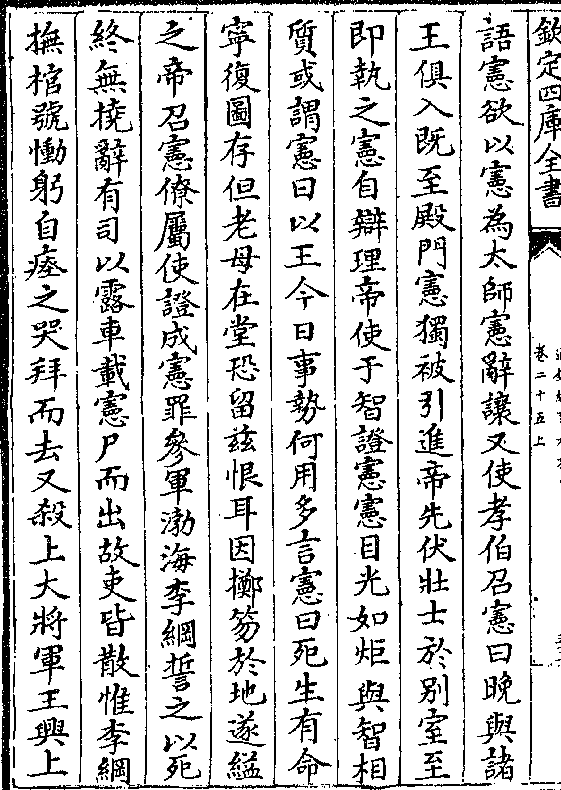 欽定四庫全書
卷二十五上
語憲欲以憲為太師憲辭讓又使孝伯召憲曰晚與諸
王俱入既至殿門憲獨被引進帝先伏壯士於别室至
即執之憲自辯理帝使于智證憲憲目光如炬與智相
質或謂憲曰以王今日事勢何用多言憲曰死生有命
寧復圖存但老母在堂恐留兹恨耳因擲笏於地遂縊
之帝召憲僚屬使證成憲罪參軍渤海李綱誓之以死
終無撓辭有司以露車載憲尸而出故吏皆散惟李綱
撫棺號慟躬自瘞之哭拜而去又殺上大將軍王興上